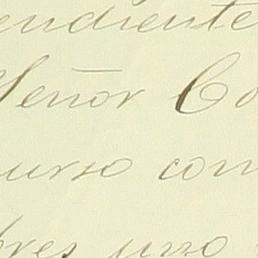 endiente
Señor Co
urso con
bres uzo